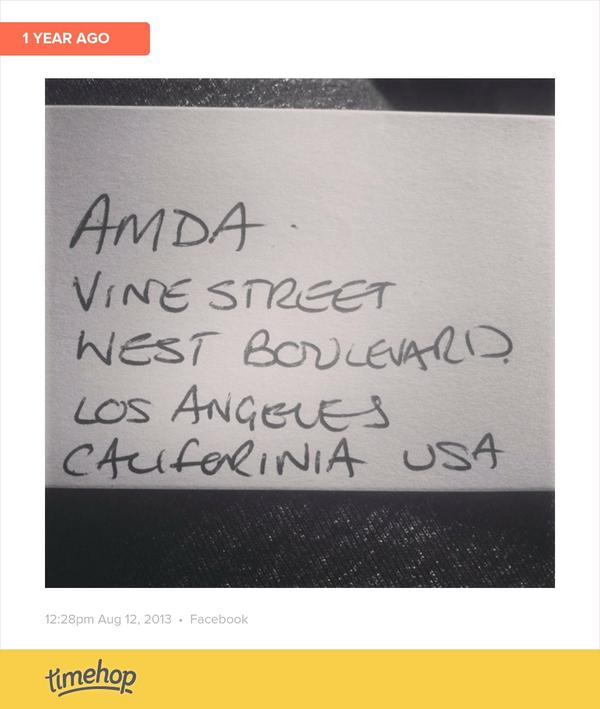 1 YEAR AGO
AMDA.
VINE STREET
WEST BOULEVARD.
LOS ANGELES
CALIFORINIA USA
12:28pm Aug 12, 2013 • Facebook
timehop